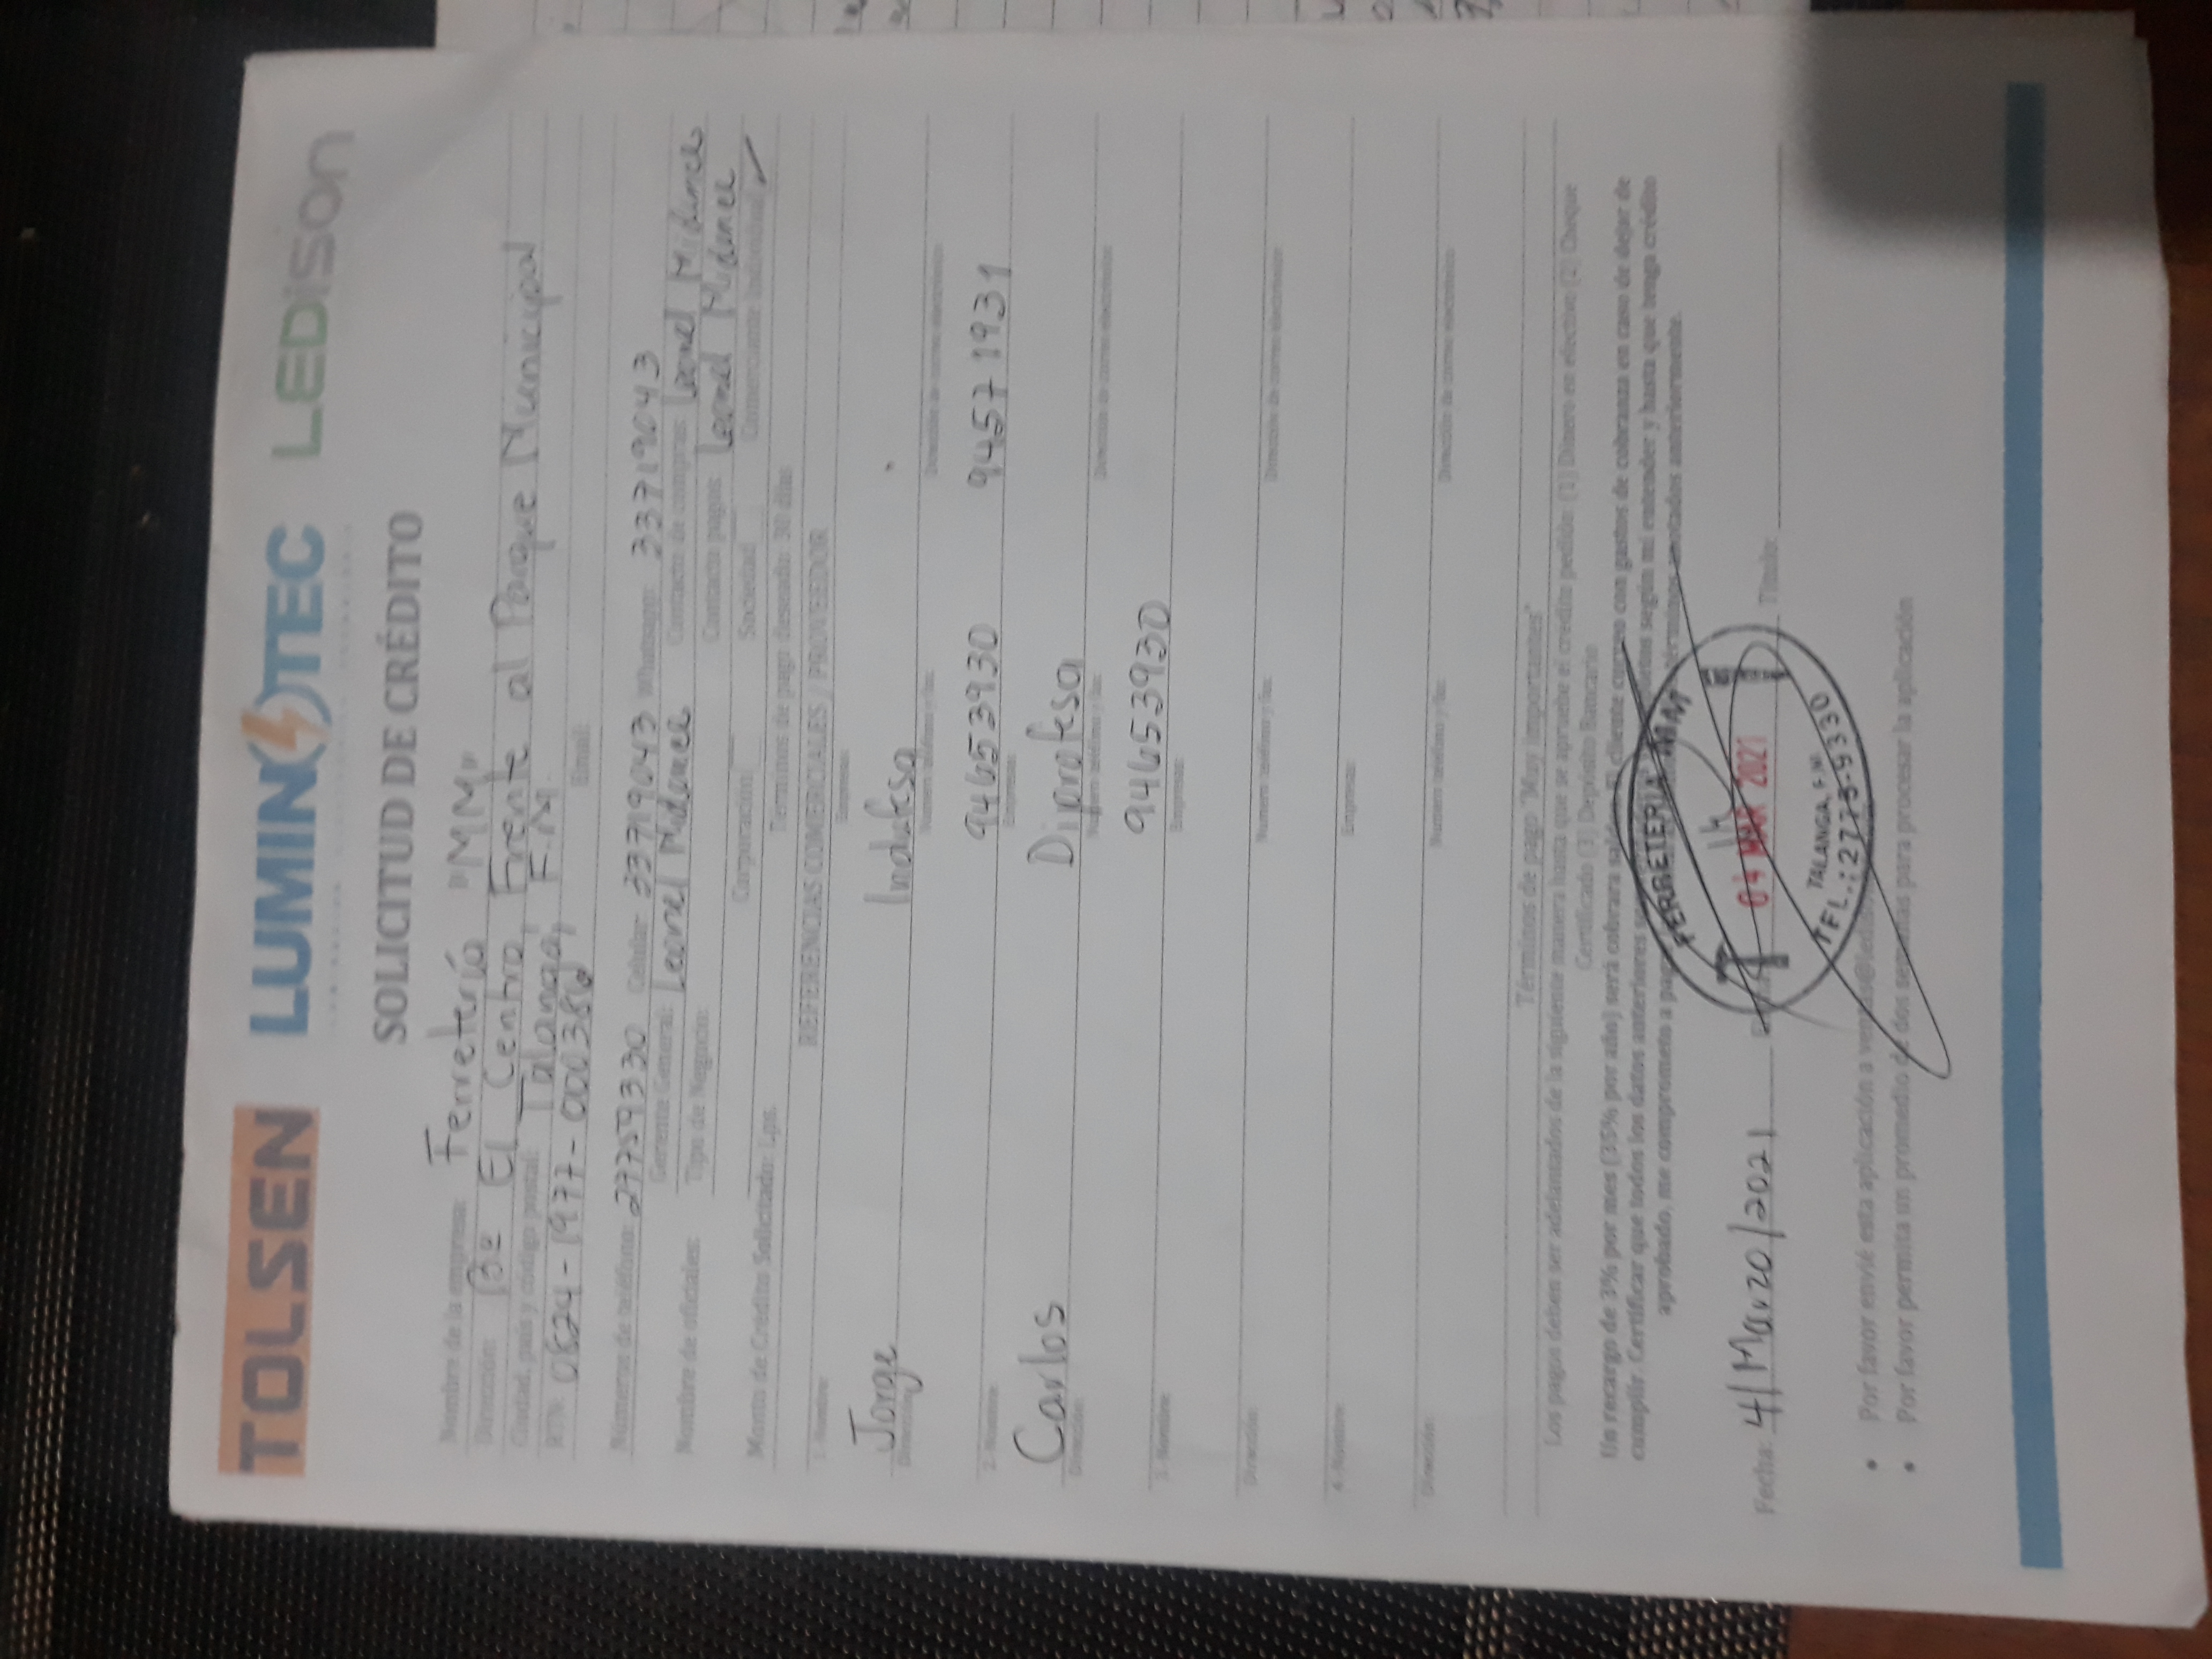 TOLSEN LUMINOTEC LEDison
SOLICITUD DE CRÉDITO
Nombre de la empresa: Ferretería "MM"
Dirección: Bº El Centro, Frente al Parque Municipal
Ciudad, país y código postal: Talanga, F.M.
RTN: 0824-1977-000386 Email:
Números de teléfono: 27759330 Celular: 33719043 Whatsapp: 33719043
Gerente General: Leonel Midence Contacto de compras: Leonel Midence
Nombre de oficiales: Tipo de Negocio: Contacto pagos: Leonel Midence
Corporación Sociedad Comerciante Individual ✓
Monto de Crédito Solicitado: Lps. Términos de pago deseado: 30 días
REFERENCIAS COMERCIALES / PROVEEDOR
1-Nombre: Empresa:
Jorge Indufesa
Dirección: Numero teléfono y fax: Dirección de correo electrónico:
94653930 94571931
2-Nombre: Empresa:
Carlos Diprofesa
Dirección: Numero teléfono y fax: Dirección de correo electrónico:
94653930
3-Nombre: Empresa:
Dirección: Numero teléfono y fax: Dirección de correo electrónico:
4-Nombre: Empresa:
Dirección: Numero teléfono y fax: Dirección de correo electrónico:
Términos de pago "Muy importantes"
Los pagos deben ser adelantados de la siguiente manera hasta que se apruebe el credito pedido: (1) Dinero en efectivo (2) Cheque
Certificado (3) Depósito Bancario
Un recargo de 3% por mes (35% por año) será cobrara El cliente con gastos de cobranza en caso de dejar de
cumplir. Certificar que todos los datos anteriores según mi entender y hasta que tenga crédito
aprobado, me comprometo a términos anotados anteriormente.
FERRETERIA MM
Fecha: 4/Marzo/2021 04 MAR 2021 Titulo:
TALANGA, F.M.
TEL.: 2775-9330
• Por favor envié esta aplicación a
• Por favor permita un promedio de dos semanas para procesar la aplicación